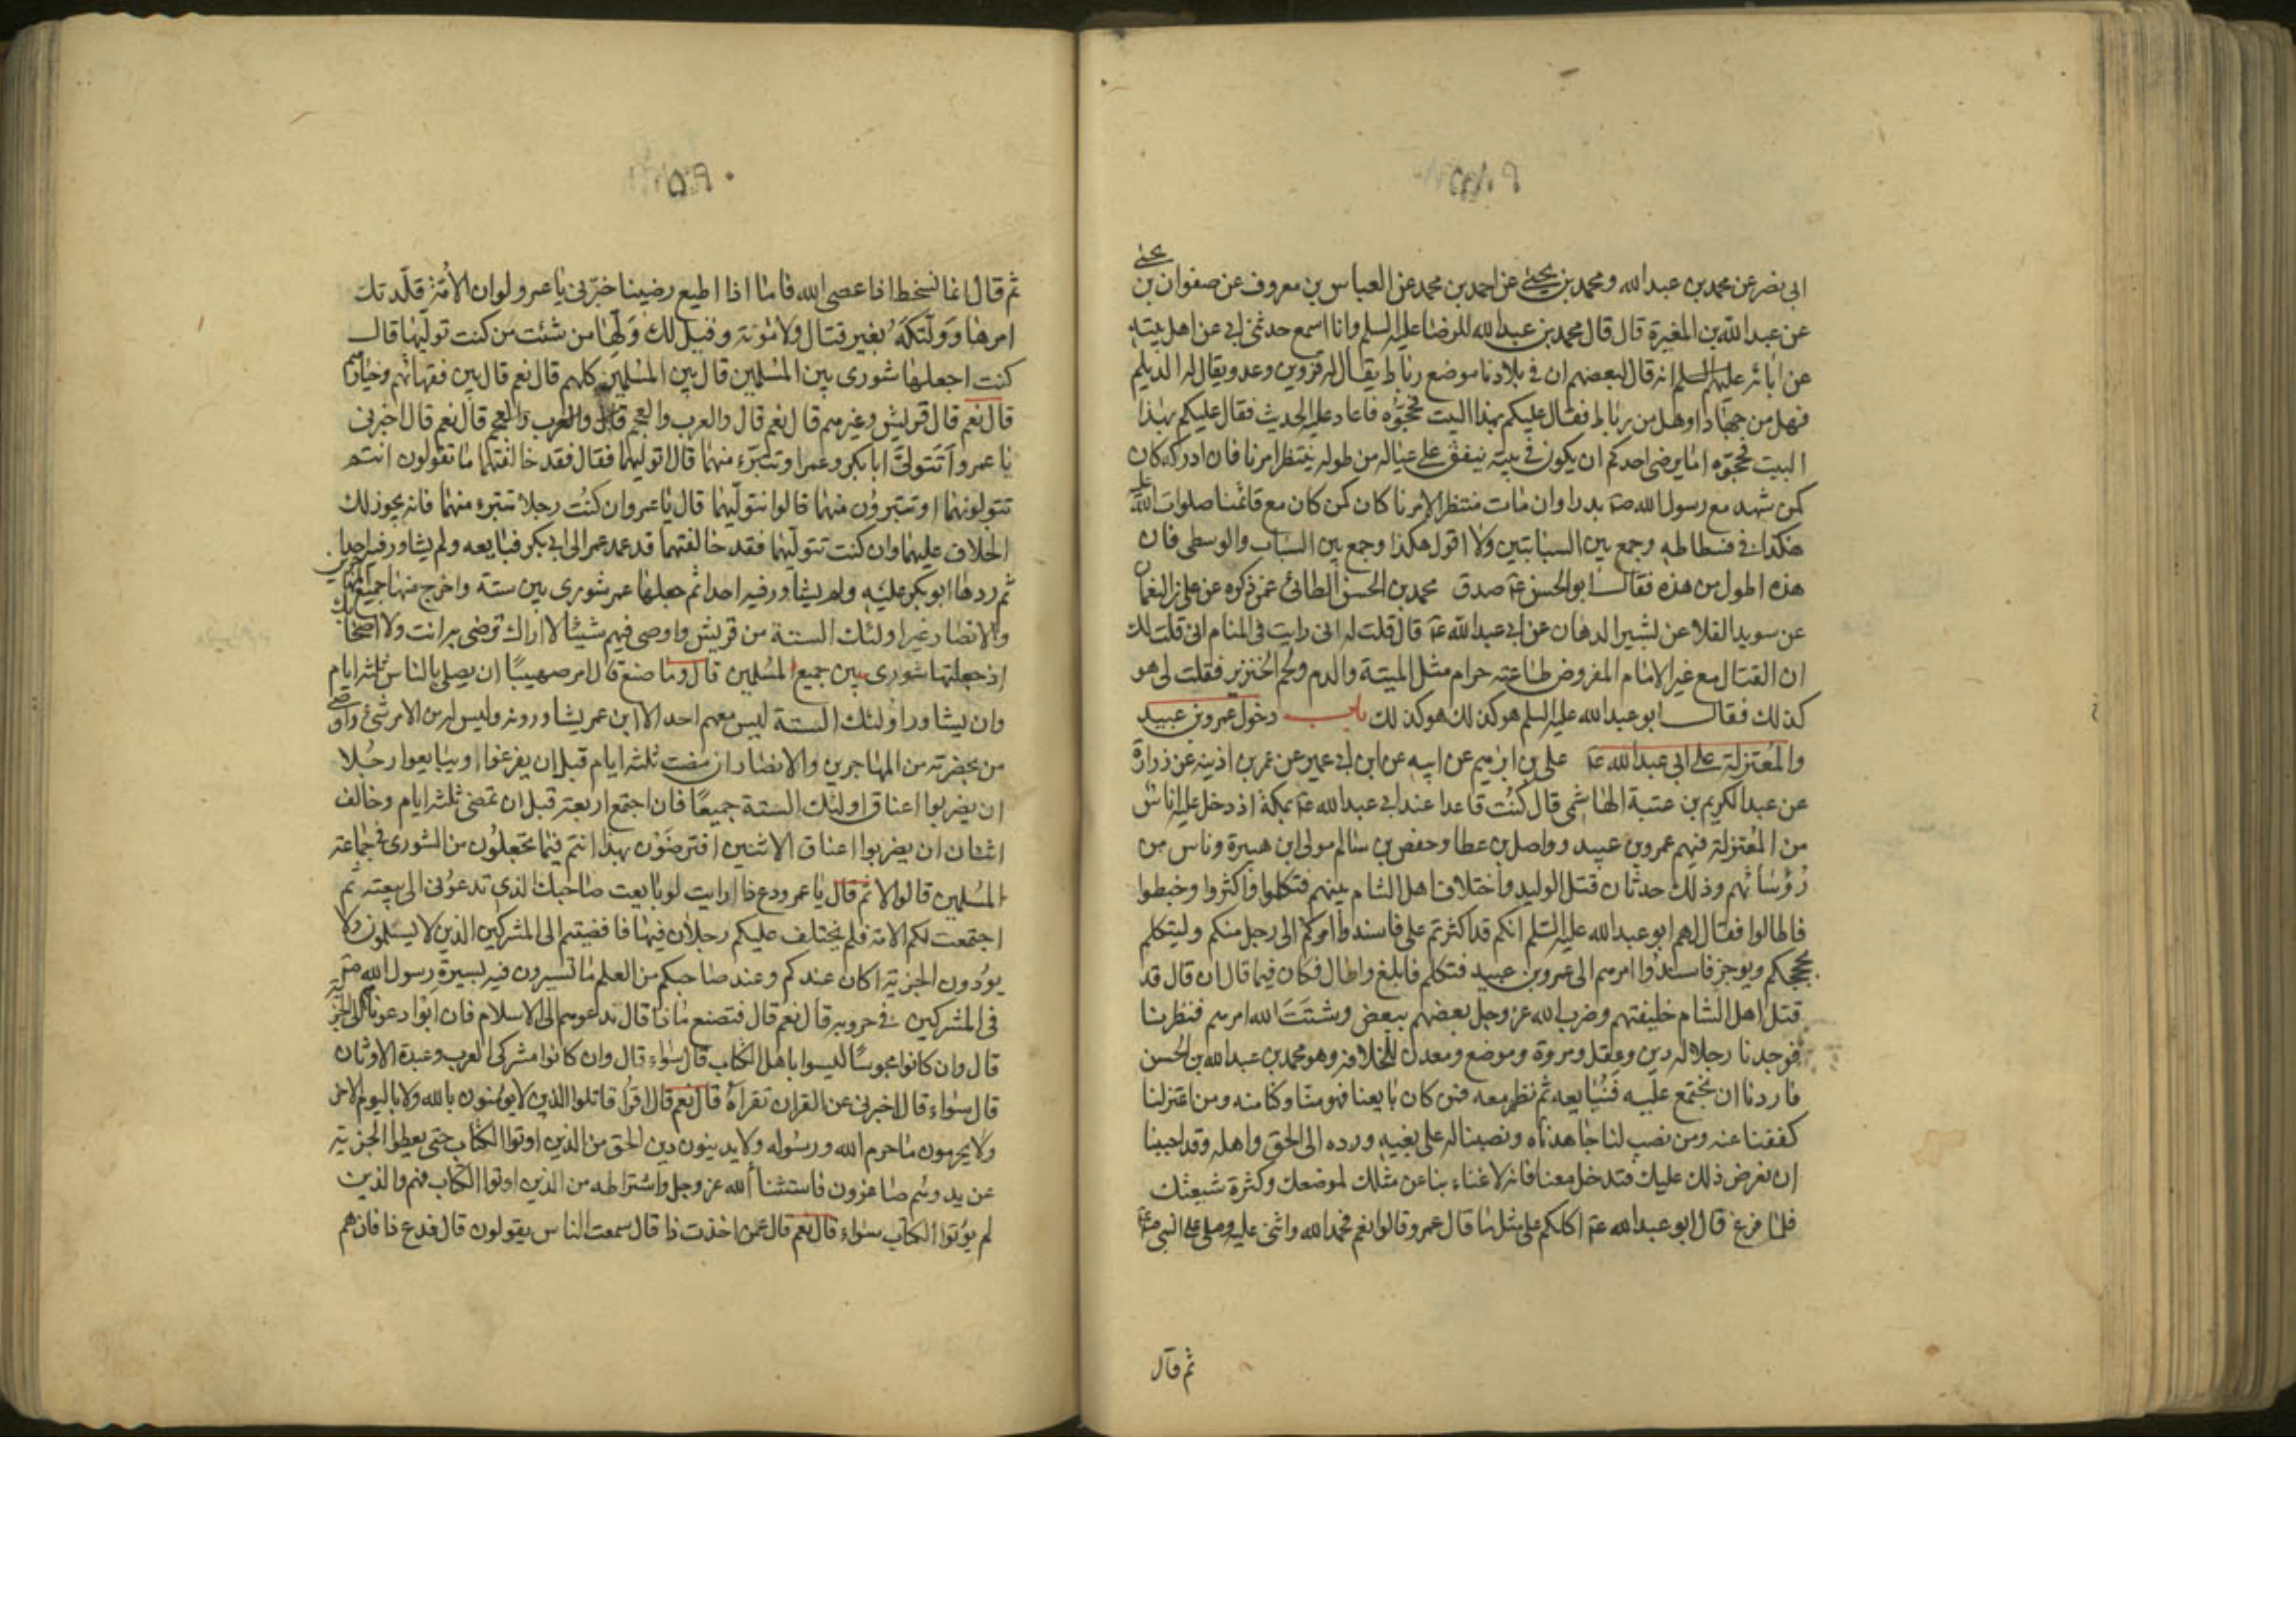 ابى نصر عن محمد بن عبد الله ومحمد بن يحيى عن احمد بن محمد عن العباس بن معروف عن صفوان بن يحيى
عن عبد الله بن المغيرة قال قال محمد بن عبد الله للرضا عليه السلم وانا اسمع حدثنى ابى عن اهل بيته
عن ابائه عليهم السلم انه قال لبعضهم ان فى بلادنا موضع رباط يقال له قزوين وعدو يقال له الديلم
فهل من جهاد او هل من رباط فقال عليكم بهذا البيت فحجّوه فاعاد عليه الحديث فقال عليكم بهذا
البيت فحجّوه اما يرضى احدكم ان يكون فى بيته ينفق على عياله من طوله ينتظر امرنا فان ادركه كان
كمن شهد مع رسول الله صم بدرا وان مات منتظرا لامرنا كان كمن كان مع قائمنا صلوات الله عليه
هكذا فى فسطاطه وجمع بين السبابتين ولا اقول هكذا وجمع بين السبابة والوسطى فان
هذه اطول من هذه فقال ابو الحسن عم صدق محمد بن الحسن الطائى عمن ذكره عن على بن النعمان
عن سويد القلا عن بشير الدهان عن ابى عبد الله عم قال قلت له انى رايت فى المنام انى قلت لك
ان القتال مع غير الامام المفروض طاعته حرام مثل الميتة والدم ولحم الخنزير فقلت لى هو
كذلك فقال ابو عبد الله عليه السلم هو كذلك هو كذلك باب دخول عمرو بن عبيد
والمعتزلة على ابى عبد الله عم على بن ابراهيم عن ابيه عن ابن ابى عمير عن عمر بن اذينة عن زرارة
عن عبد الكريم بن عتبة الهاشمى قال كنت قاعدا عند ابى عبد الله عم بمكة اذ دخل عليه اناس
من المعتزلة فيهم عمرو بن عبيد وواصل بن عطا وحفص بن سالم مولى ابن هبيرة وناس من
رؤسائهم وذلك حدثان قتل الوليد واختلاف اهل الشام بينهم فتكلموا واكثروا وخبطوا
فاطالوا فقال لهم ابو عبد الله عليه السّلم انكم قد اكثرتم على فاسندوا امركم الى رجل منكم وليتكلم
بحججكم ويوجز فاسندوا امرهم الى عمرو بن عبيد فتكلم فابلغ واطال فكان فيما قال ان قال قد
قتل اهل الشام خليفتهم وضرب الله عز وجل بعضهم ببعض وشتت الله امرهم فنظرنا
فوجدنا رجلا له دين وعقل ومروة وموضع ومعدن للخلافة وهو محمد بن عبد الله بن الحسن
فاردنا ان نجتمع عليه فنبايعه ثم نظهر معه فمن كان بايعنا فهو منا وكنا منه ومن اعتزلنا
كففنا عنه ومن نصب لنا جاهدناه ونصبنا له على بغيه ورده الى الحق واهله وقد احببنا
ان نعرض ذلك عليك فتدخل معنا فانه لا غناء بنا عن مثلك لموضعك وكثرة شيعتك
فلما فرغ قال ابو عبد الله عم اكلكم على مثل ما قال عمرو قالوا نعم فحمد الله واثنى عليه وصلى على النبى صم
ثم قال
ثم قال انما نسخط اذا عصى الله فاما اذا اطيع رضينا خبّرنى يا عمرو لو ان الامّة قلّدتك
امرها وولّتكه بغير قتال ولا مؤنة وقيل لك ولّها من شئت من كنت تولّيها قال
كنت اجعلها شورى بين المسلمين قال بين المسلمين كلهم قال نعم قال بين فقهائهم وخيارهم
قال نعم قال قريش وغيرهم قال نعم قال والعرب والعجم قال والعرب والعجم قال نعم قال اخبرنى
يا عمرو اتتولّى ابا بكر وعمر او تتبرّء منهما قال اتوليهما فقال فقد خالفتهما ما تقولون انتم
تتولونهما او تتبرؤن منهما قالوا نتولّيهما قال يا عمرو ان كنت رجلا تتبرء منهما فانه يجوز لك
الخلاف عليهما وان كنت تتولّيهما فقد خالفتهما قد عمد عمر الى ابى بكر فبايعه ولم يشاور فيه احدا
ثم ردها ابو بكر عليه ولم يشاور فيه احدا ثم جعلها عمر شورى بين ستة واخرج منها جميع المهاجرين
والانصار غير اولئك الستة من قريش واوصى فيهم شيئا لا اراك ترضى به انت ولا اصحابك
اذ جعلتها شورى بين جميع المسلمين قال وما صنع قال امر صهيبًا ان يصلى بالناس ثلثة ايام
وان يشاور اولئك الستة ليس معهم احد الا ابن عمر يشاورونه وليس له من الامر شئ واوصى
من بحضرته من المهاجرين والانصار ان مضت ثلثة ايام قبل ان يفرغوا او يبايعوا رجلا
ان يضربوا اعناق اولئك الستة جميعًا فان اجتمع اربعة قبل ان تمضى ثلثة ايام وخالف
اثنان ان يضربوا اعناق الاثنين افترضون بهذا انتم فيما تجعلون من الشورى فى جماعة
المسلمين قالوا لا ثم قال يا عمرو دع ذا ارايت لو بايعت صاحبك الذى تدعونى الى بيعته ثم
اجتمعت لكم الامة فلم يختلف عليكم رجلان فيها فافضيتم الى المشركين الذين لا يسلمون ولا
يؤدون الجزية اكان عندكم وعند صاحبكم من العلم ما تسيرون فيه بسيرة رسول الله صم
فى المشركين فى حروبه قال نعم قال فتصنع ماذا قال ندعوهم الى الاسلام فان ابوا دعوناهم الى الجزية
قال وان كانوا مجوسًا ليسوا باهل الكتاب قال سواء قال وان كانوا مشركى العرب وعبدة الاوثان
قال سواء قال اخبرنى عن القران تقرأه قال نعم قال اقرأ قاتلوا الذين لا يؤمنون بالله ولا باليوم الاخر
ولا يحرمون ما حرم الله ورسوله ولا يدينون دين الحق من الذين اوتوا الكتاب حتى يعطوا الجزية
عن يد وهم صاغرون فاستثناء الله عز وجل واشتراطه من الذين اوتوا الكتاب فهم والذين
لم يؤتوا الكتاب سواء قال نعم قال عمن اخذت ذا قال سمعت الناس يقولون قال فدع ذا فان هم